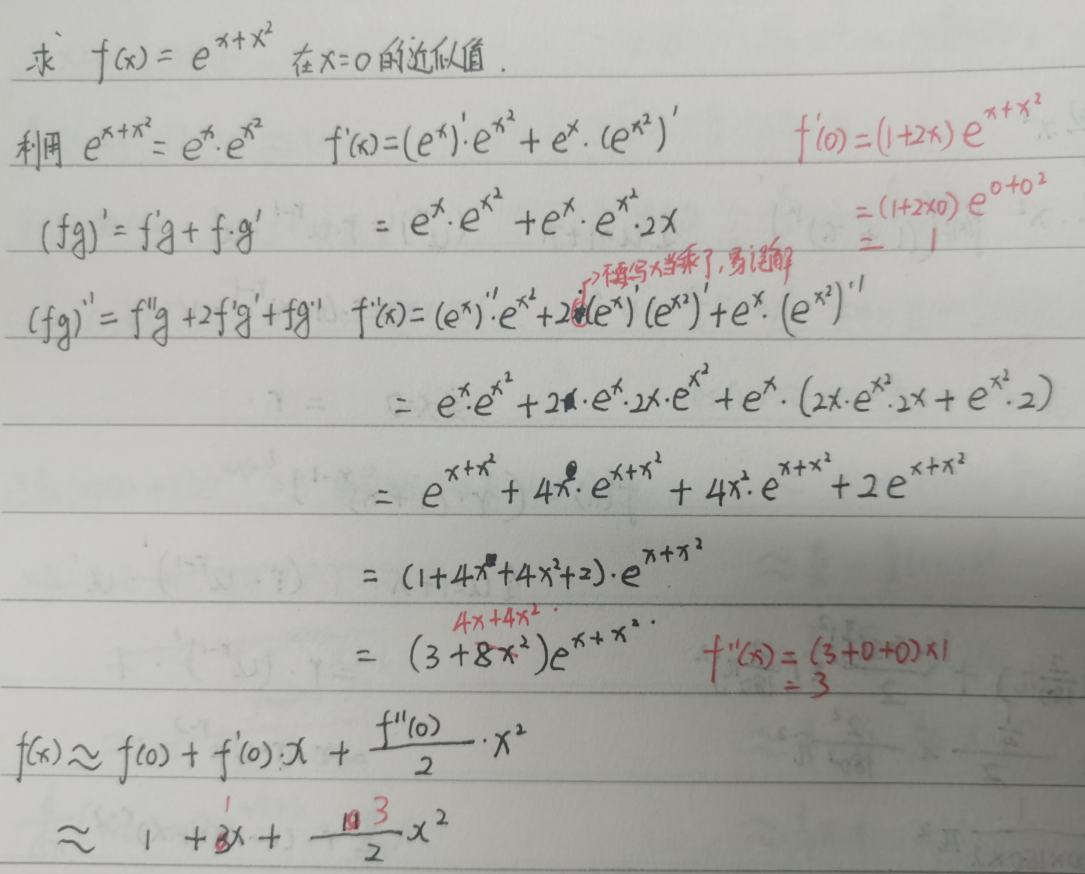 求 f(x) = e^{x+x²} 在x=0 的近似值.
利用 e^{x+x²} = e^x·e^{x²} f'(x) = (e^x)'·e^{x²} + e^x·(e^{x²})' f'(0) = (1+2x) e^{x+x²}
(fg)' = f'g + f·g' = e^x·e^{x²} + e^x·e^{x²}·2x = (1+2×0) e^{0+0²}
= 1
不要写大当乘了,易误解
(fg)'' = f''g + 2f'g' + fg'' f''(x) = (e^x)''·e^{x²} + 2(e^x)'(e^{x²})' + e^x·(e^{x²})''
= e^x·e^{x²} + 2·e^x·2x·e^{x²} + e^x·(2x·e^{x²}·2x + e^{x²}·2)
= e^{x+x²} + 4x·e^{x+x²} + 4x²·e^{x+x²} + 2e^{x+x²}
= (1+4x+4x²+2)·e^{x+x²}
4x+4x²
= (3+8x²)e^{x+x²} f''(x) = (3+0+0)×1
= 3
f(x) ≈ f(0) + f'(0)·x + f''(0)/2·x²
≈ 1 + 1x + 3/2 x²